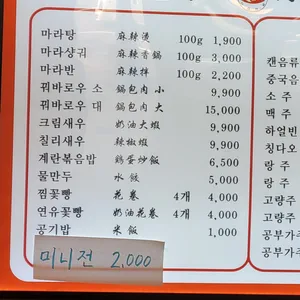 마라탕 麻辣烫 100g 1,900
마라샹궈 麻辣香锅 100g 3,000
마라반 麻辣拌 100g 2,200
꿔바로우 소 锅包肉 小 9,900
꿔바로우 대 锅包肉 大 15,000
크림새우 奶油大虾 9,900
칠리새우 辣椒虾 9,900
계란볶음밥 鸡蛋炒饭 6,500
물만두 水饺 5,000
찜꽃빵 花卷 4개 4,000
연유꽃빵 奶油花卷 4개 4,000
공기밥 米饭 1,000
미니전 2,000
캔음류
소주
맥주
하얼빈
칭다오
량주
량주
고량주
고량주
공부가주
공부가주